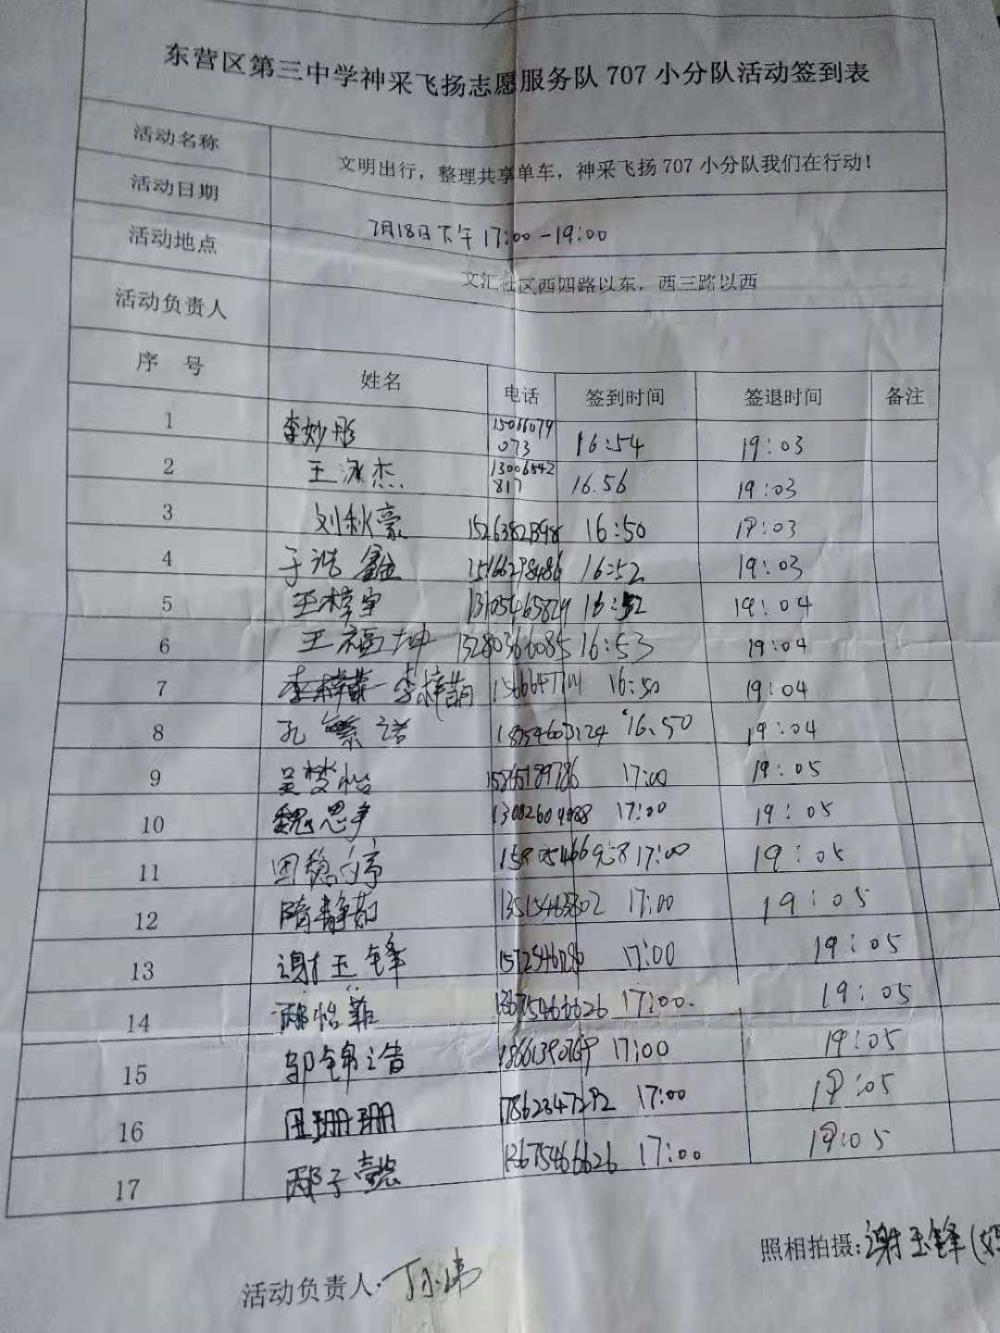 东营区第三中学神采飞扬志愿服务队 707 小分队活动签到表
活动名称 文明出行，整理共享单车，神采飞扬 707 小分队我们在行动！
活动日期 7月18日下午 17:00-19:00
活动地点 文汇社区西四路以东，西三路以西
活动负责人
序 号 姓名 电话 签到时间 签退时间 备注
1 李妙彤 15066079073 16:54 19:03
2 王泳杰 13006542817 16.56 19:03
3 刘秋豪 16:50 19:03
4 于浩鑫 15166298486 16:52 19:03
5 王梓宇 13105465829 16:52 19:04
6 王福坤 13280366085 16:53 19:04
7 李梓萌 16:50 19:04
8 孔繁诺 18954603124 16.50 19:04
9 吴梦怡 17:00 19:05
10 魏思予 13082604988 17:00 19:05
11 17:00 19:05
12 隋静茹 17:00 19:05
13 谢玉锋 17:00 19:05
14 怡菲 13675466626 17:00. 19:05
15 17:00 19:05
16 田珊珊 17862347292 17:00 19:05
17 邴子懿 13675466626 17:00 19:05
照相拍摄:谢玉锋(妈
活动负责人:丁小涛